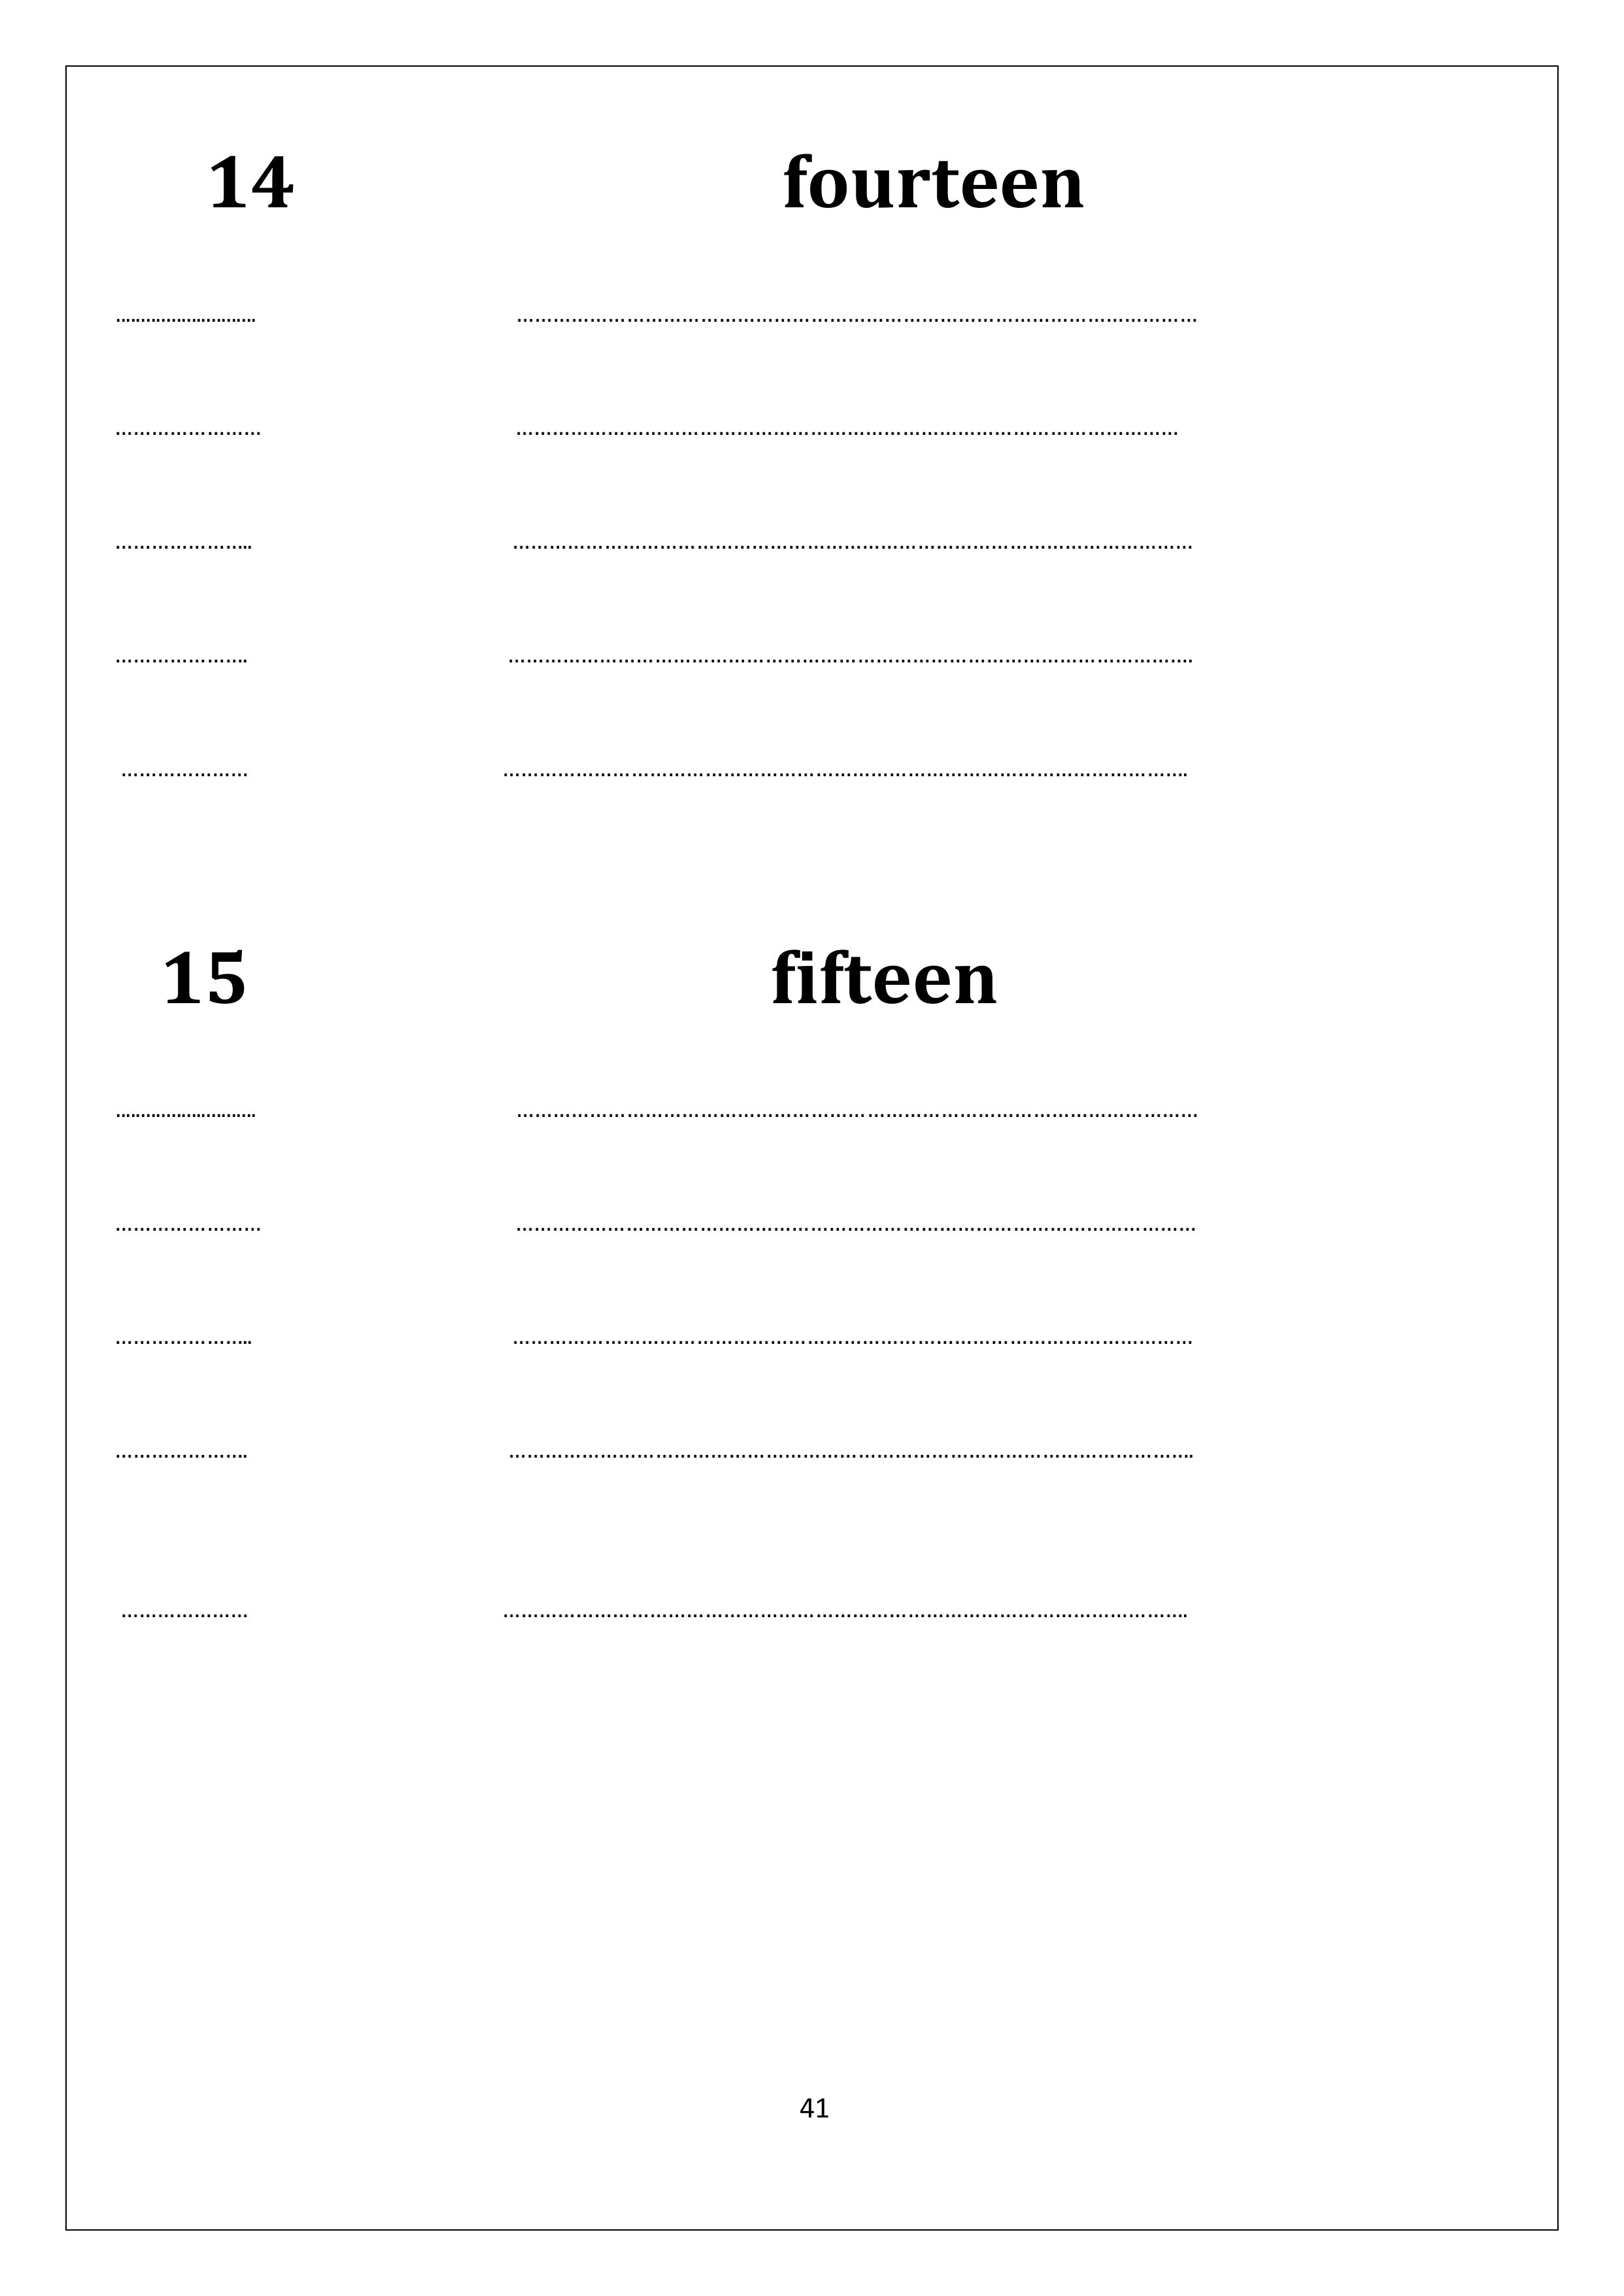 14 fourteen
........................... ……………………………………………………………………………………………………
…………………… …………………………………………………………………………………………………
………………….. ……………………………………………………………………………………………………
…………………. …………………………………………………………………………………………………….
………………… …………………………………………………………………………………………………….
15 fifteen
........................... ……………………………………………………………………………………………………
…………………… ……………………………………………………………………………………………………
………………….. ……………………………………………………………………………………………………
…………………. …………………………………………………………………………………………………….
………………… …………………………………………………………………………………………………….
41